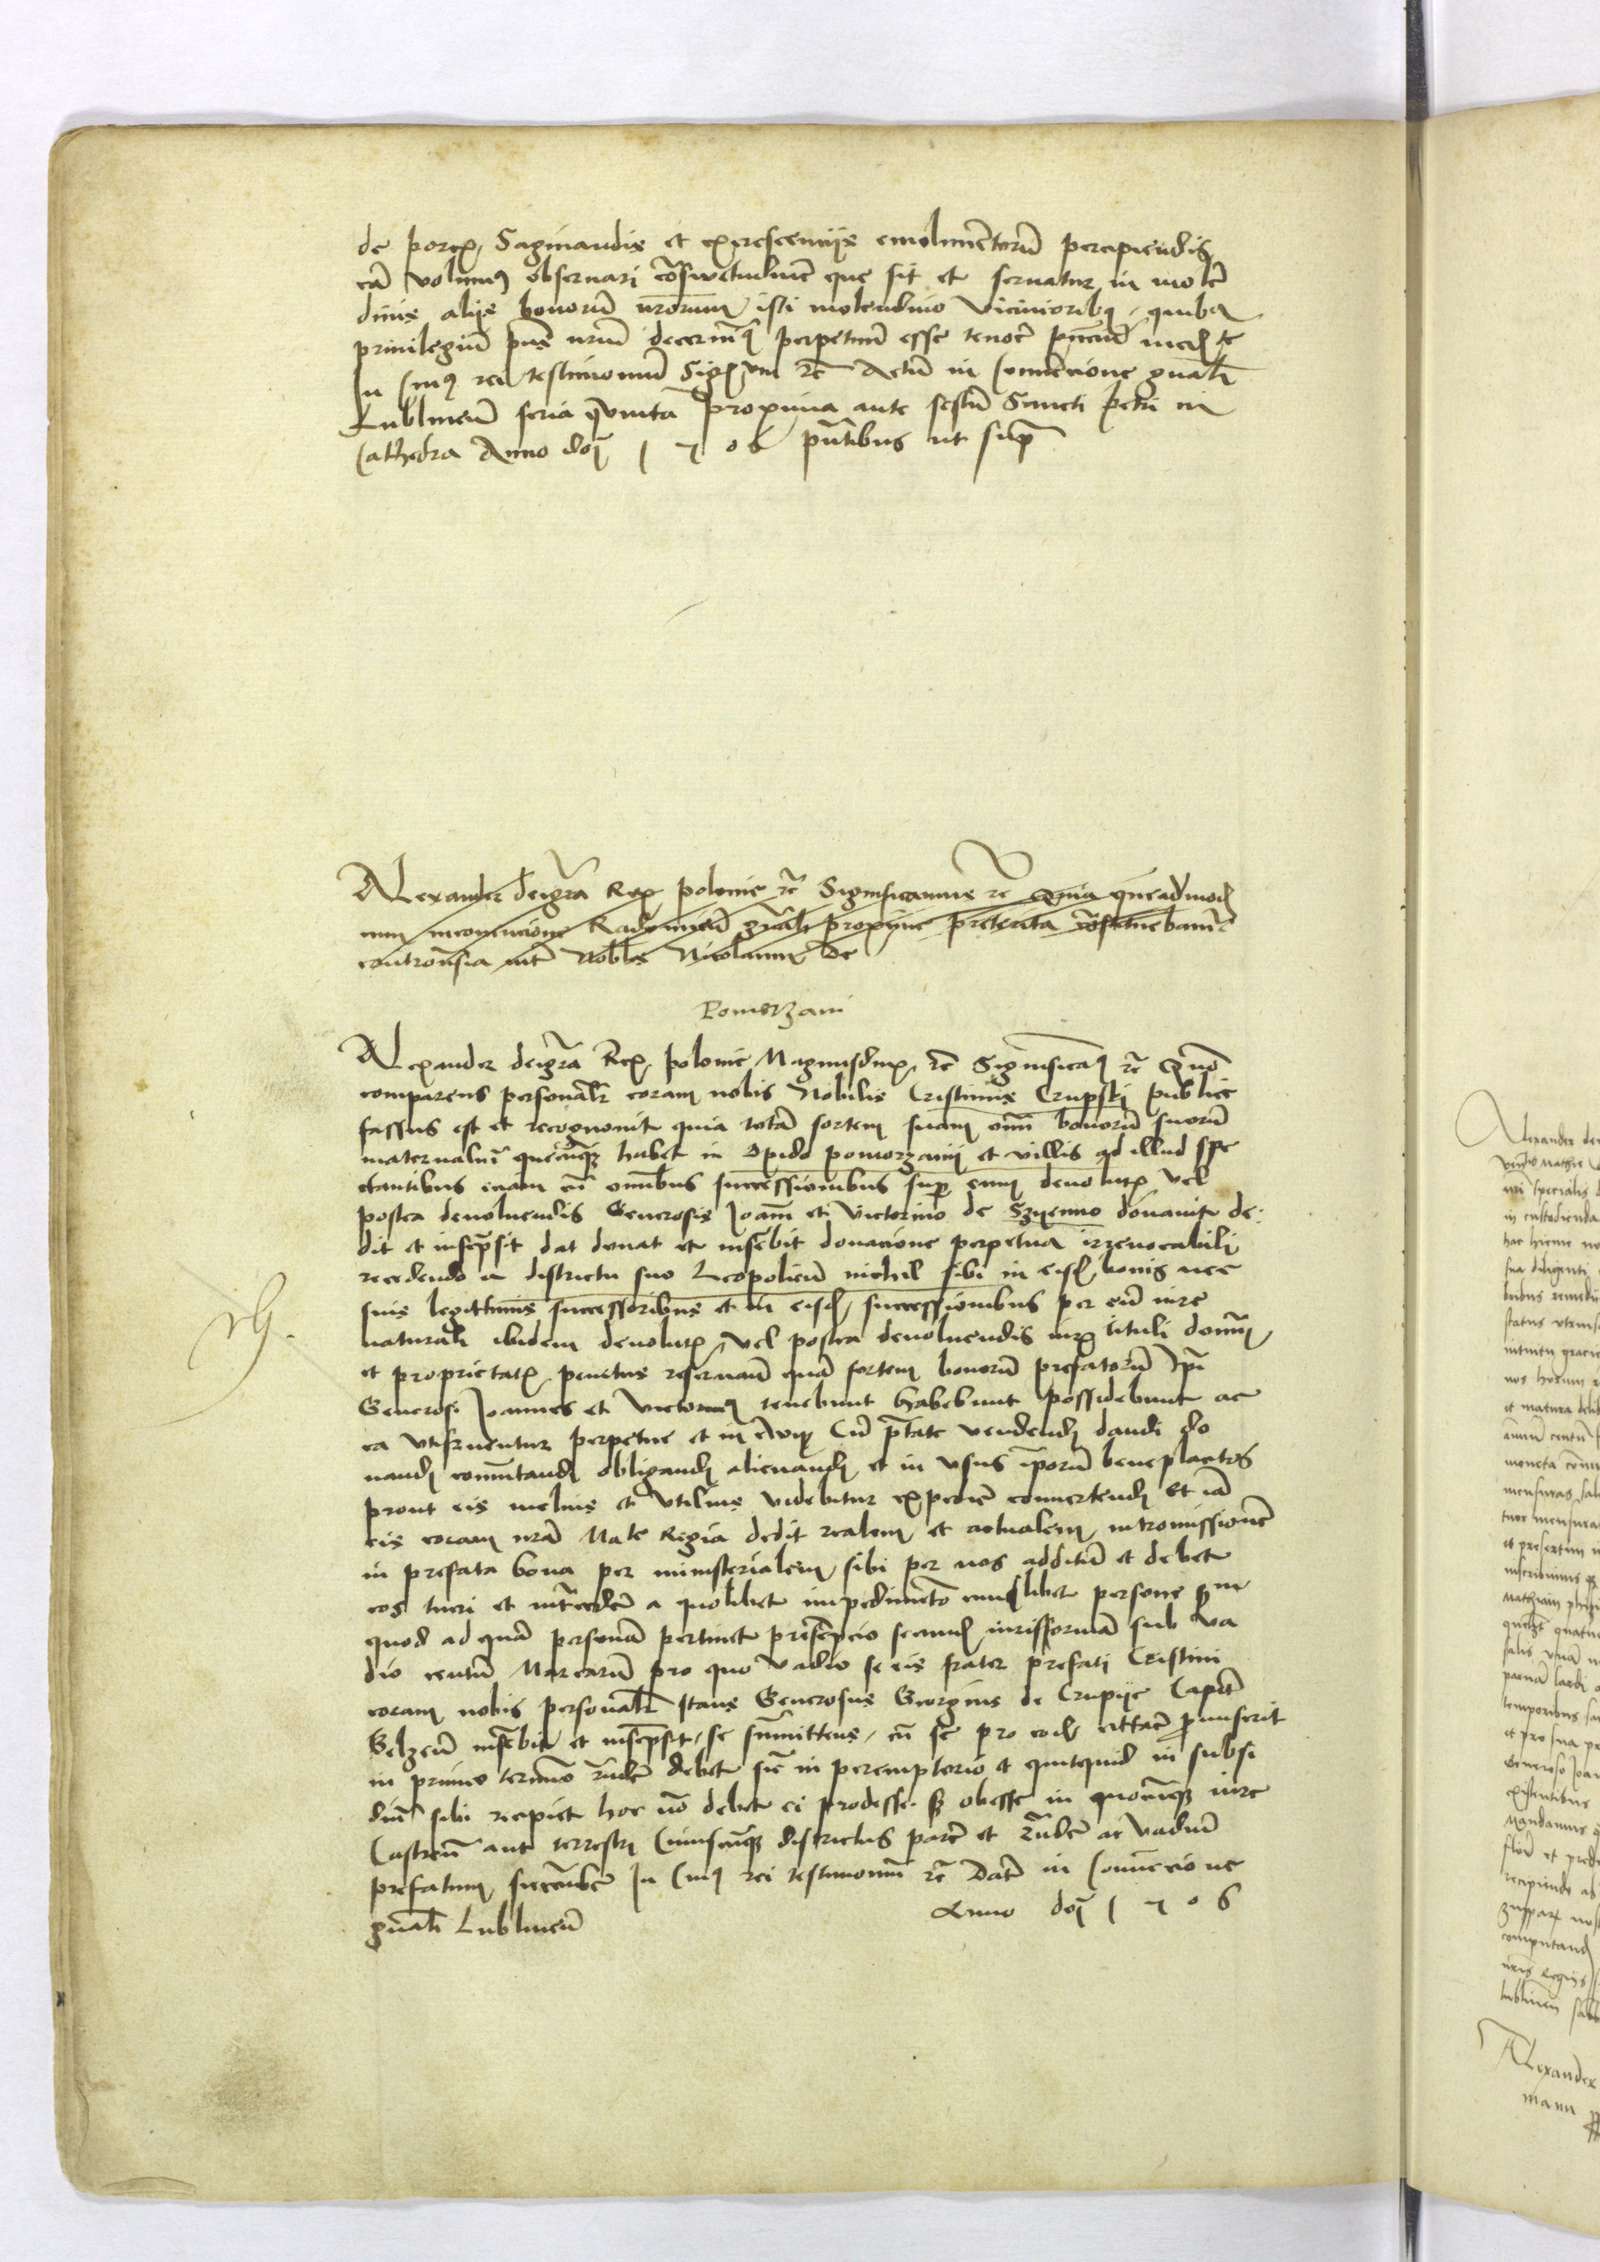 de porcis Saginandis et excrescencijs emolimentorū percipiendis
eā volumus observari cōswetudinē que sit et servatur in molē
dinis alijs bonorū nrorum isti molendino Vicinioribus
privilegiū pns nrm decernimus perpetuū esse tenore
In cuius rei testimoniū Sigillum etc Actū in convencione gnāli
Lublineñ feria quinta proxima ante festū Sancti petri in
Cathedra Anno dni 1506 pntibus ut supra
Alexander dei grā Rex polonie etc Significamus etc Quia quēadmod
um in convencione Radomieñ gnāli proxime preterita
controvsia inter Nobiles Nicolaum de
Pomorzani
Alexander dei grā Rex polonie Magnusdux etc Significamus etc Quo
comparens personalr coram nobis Nobilis Cristinus Crupski publice
fassus est et recognovit quia totā sortem suam omnem bonorū suorū
maternaliū quēcūqz habet in Opido pomorzanij et villis ad illud spe
ctantibus eciam cū omnibus successionibus super eum devolutis vel
postea devoluendis Generosis Joanni et Victorino de Szyenno donavit de
dit et inscripsit dat donat et inscribit donacione perpetua irrevocabili
recedendo a districtu suo Leopolieñ nichil sibi in eisdem bonis nec
suis legittimis successoribus et in eisdem successionibus per eum iure
naturali ibidem devolutis vel postea devoluendis iuris tituli dominij
et proprietatis penitus reservando quā sortem bonorū prefatorū ipsi
Generosi Joannes et Victorinus tenebunt habebunt possidebunt ac
ea utifruentur perpetue et in evum Cū ptate vendendi dandi do
nandi comutandi obligandi alienandi et in usus ipsorū beneplacitos
prout eis melius et utilius videbitur expedire convertendi Et iā
eis coram nrā Mate Regia dedit realem et actualem intromissionē
in prefata bona per ministerialem sibi per nos additū et debet
eos tueri et intercedere a quolibet impedimēto cuiuslibet persone
quod ad quā personā pertinet prescripcio secundum iurisformam sub va
dio centū Marcarū pro quo vadio se eis frater prefati Cristini
coram nobis personalr stans Generosus Georgius de Crupije Capitaneus
Belzeñ inscribit et inscripsit, se submittens, cū pro eodem citatus fuerit
in primo termino rñdere debet sicut in peremptorio et quitquid in subsi
diū sibi recipiet hoc nō debet ei prodesse sed obesse in quocūqz iure
Castreñ aut terrestri Cuiuscūqz districtus parere et rñdere ac vadium
prefatum succumbere In Cuius rei testimonium etc Datū in Convencione
gnāli Lublineñ Anno dni 1506